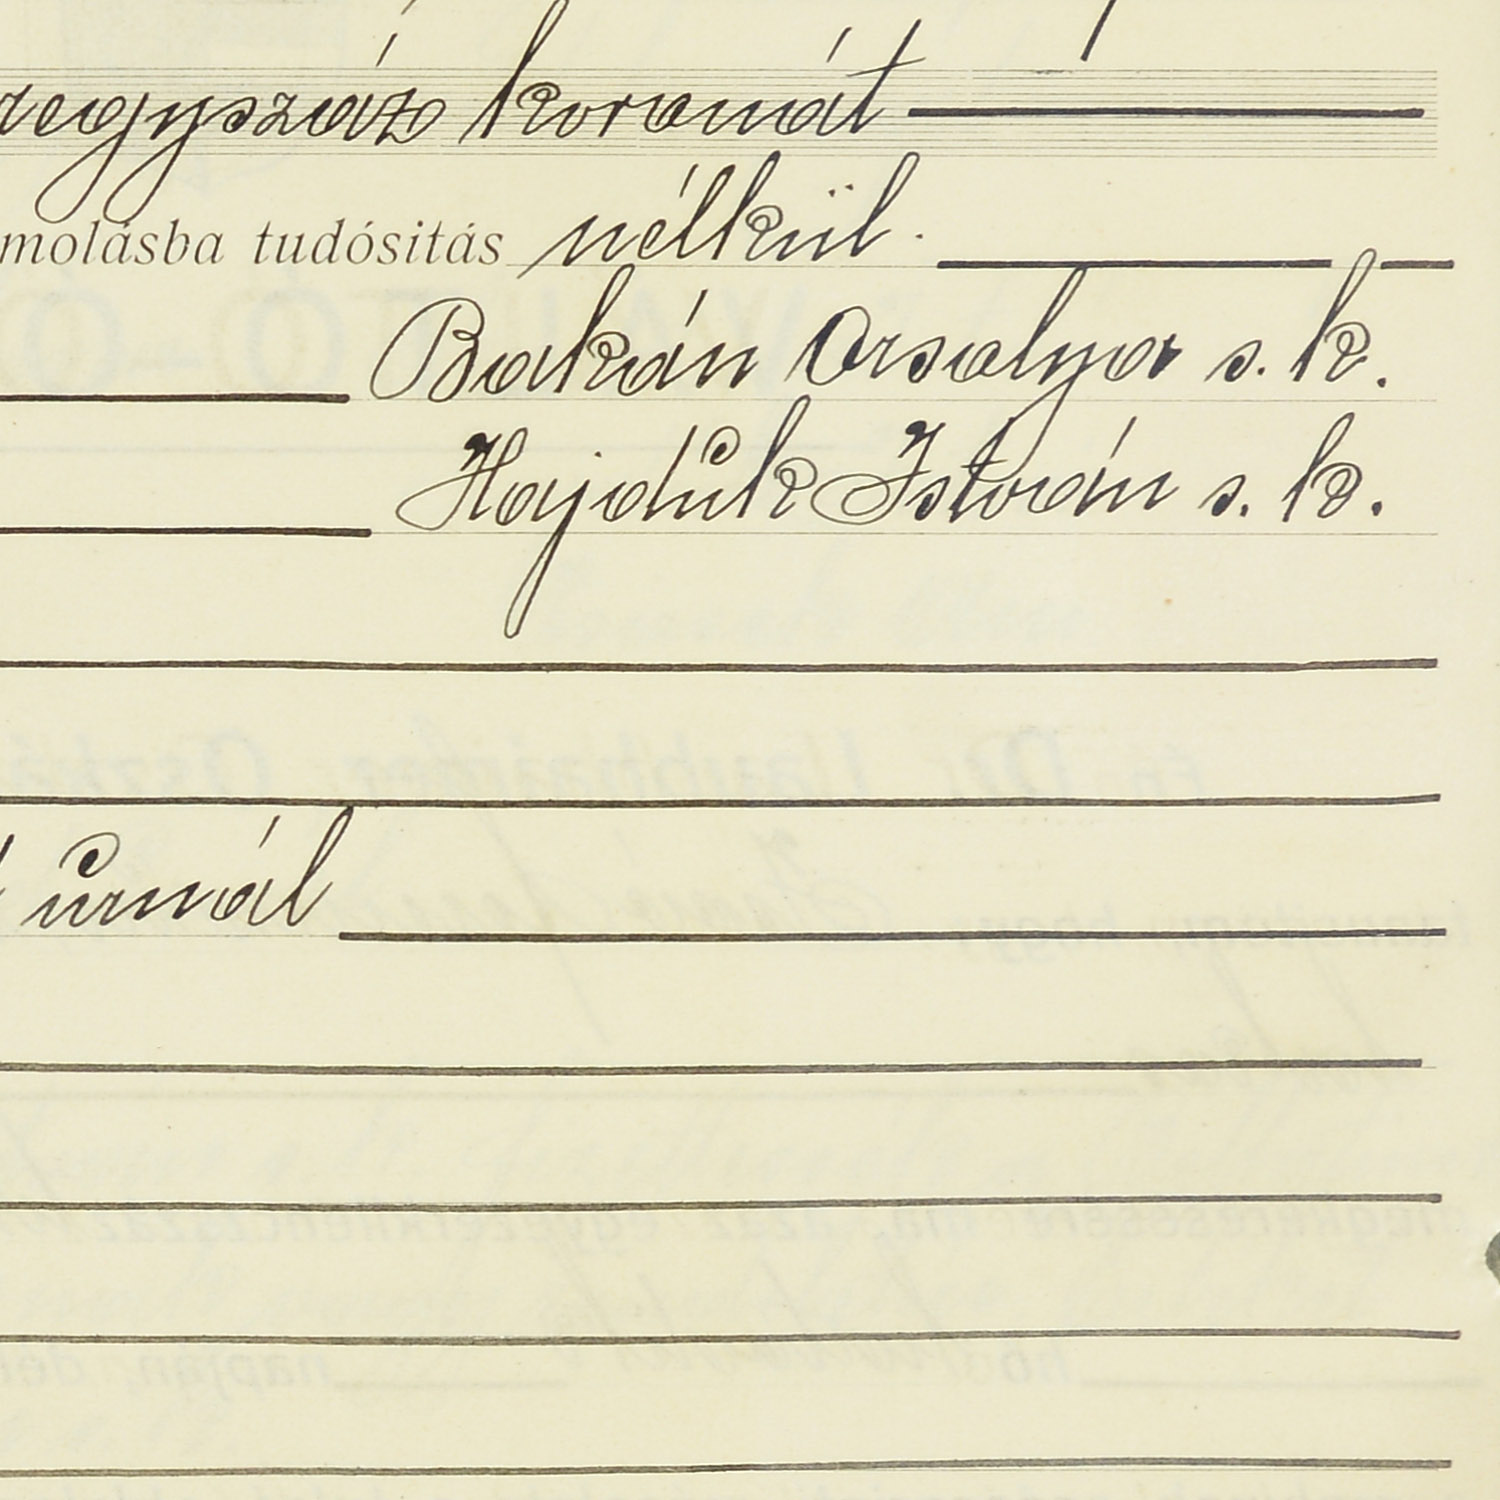 egyszáz koronát
molásba tudósítás nélkül.
Bakán Orsolya s. k.
Hajdúk István s. k.
úrnál